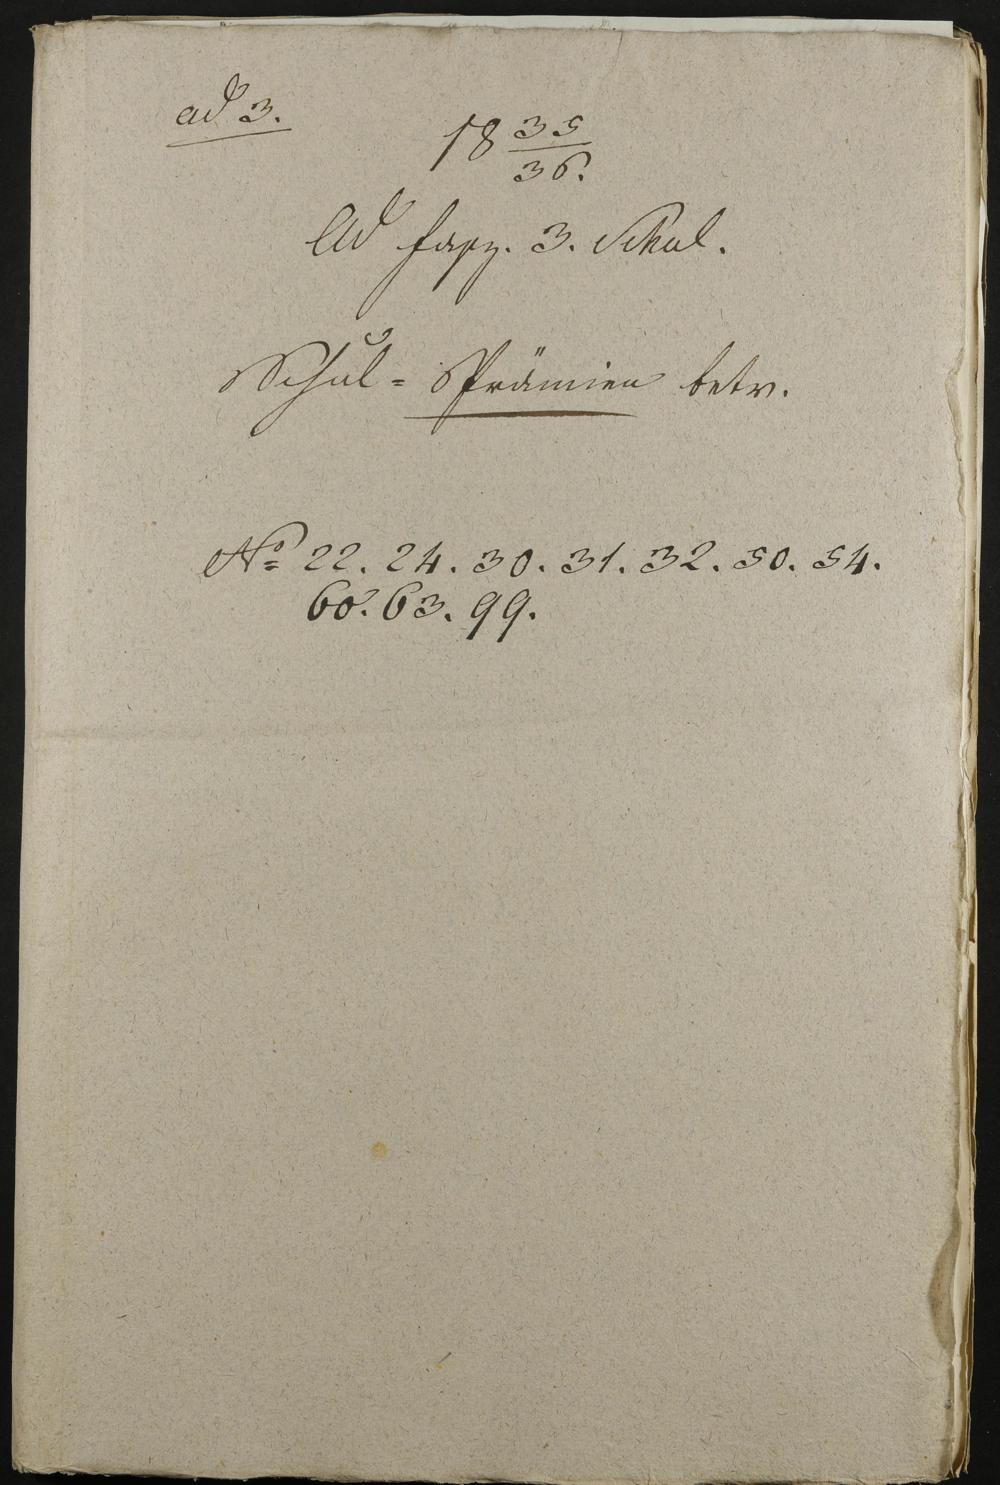 ad 3.
18 35/36.
Ad fasz. 3. Schol.
Schul= Prämien betr.
No 22. 24. 30. 31. 32. 50. 54.
60. 63. 99.